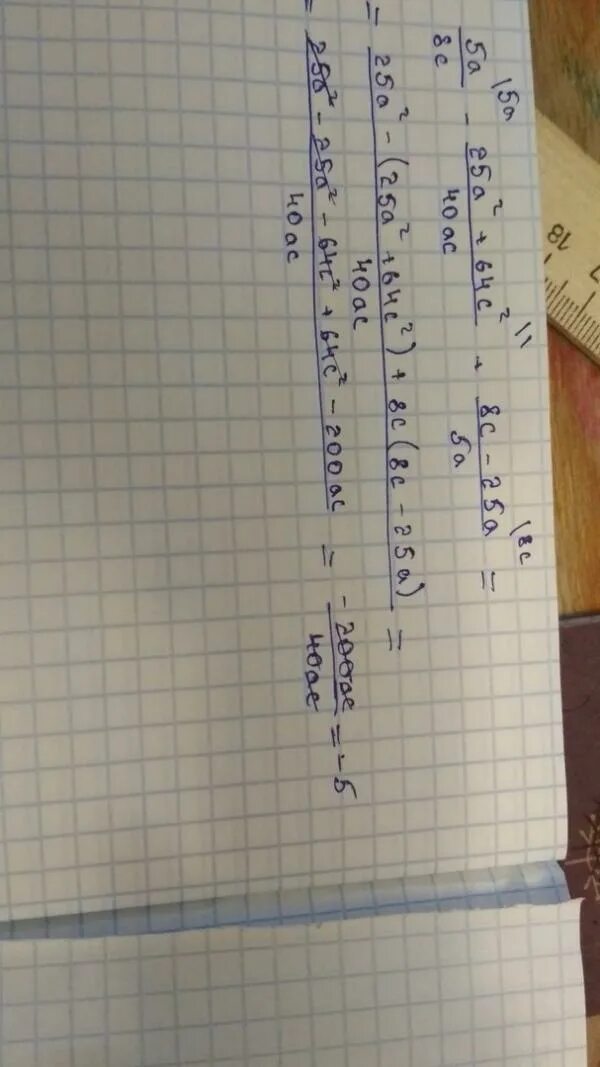 5a/8c \5a - (25a² + 64c²)/40ac \1 + (8c - 25a)/5a \8c =
= (25a² - (25a² + 64c²) + 8c(8c - 25a))/40ac =
= (25a² - 25a² - 64c² + 64c² - 200ac)/40ac = -200ac/40ac = -5
18